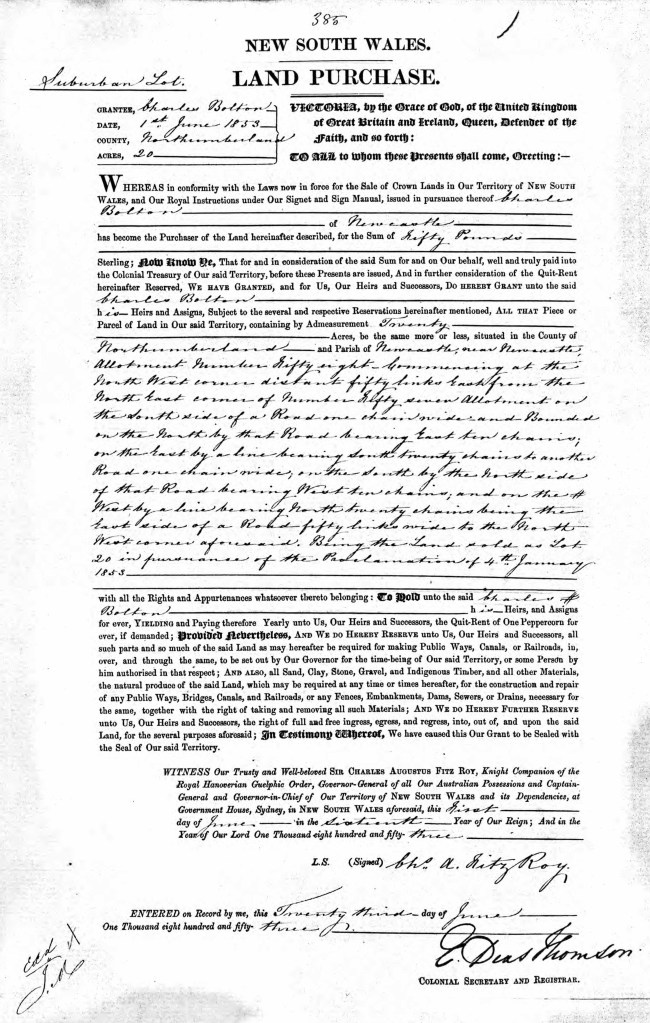 385
NEW SOUTH WALES.
LAND PURCHASE.
Suburban Lot.
GRANTEE, Charles Bolton
DATE, 1st June 1853
COUNTY, Northumberland
ACRES, 20
VICTORIA, by the Grace of God, of the United Kingdom
of Great Britain and Ireland, Queen, Defender of the
Faith, and so forth:
TO ALL to whom these Presents shall come, Greeting:—
WHEREAS in conformity with the Laws now in force for the Sale of Crown Lands in Our Territory of NEW SOUTH
WALES, and Our Royal Instructions under Our Signet and Sign Manual, issued in pursuance thereof Charles
Bolton
of Newcastle
has become the Purchaser of the Land hereinafter described, for the Sum of Fifty Pounds
Sterling; Now Know Ye, That for and in consideration of the said Sum for and on Our behalf, well and truly paid into
the Colonial Treasury of Our said Territory, before these Presents are issued, And in further consideration of the Quit-Rent
hereinafter Reserved, WE HAVE GRANTED, and for Us, Our Heirs and Successors, DO HEREBY GRANT unto the said
Charles Bolton
his Heirs and Assigns, Subject to the several and respective Reservations hereinafter mentioned, ALL THAT Piece or
Parcel of Land in Our said Territory, containing by Admeasurement Twenty
Acres, be the same more or less, situated in the County of
Northumberland and Parish of Newcastle, near Newcastle,
Allotment Number Fifty eight. Commencing at the
North West corner distant fifty links East from the
North East corner of Number Fifty seven Allotment on
the South side of a Road one chain wide and Bounded
on the North by that Road bearing East ten chains;
on the East by a line bearing South twenty chains to another
Road one chain wide; on the South by the North side
of that Road bearing West ten chains; and on the
West by a line bearing North twenty chains being the
East side of a Road fifty links wide to the North
West corner aforesaid. Being the Land sold as Lot
20 in pursuance of the Proclamation of 4th January
1853
with all the Rights and Appurtenances whatsoever thereto belonging: To Hold unto the said Charles
Bolton his Heirs, and Assigns
for ever, YIELDING and Paying therefore Yearly unto Us, Our Heirs and Successors, the Quit-Rent of One Peppercorn for
ever, if demanded; Provided Nevertheless, AND WE DO HEREBY RESERVE unto Us, Our Heirs and Successors, all
such parts and so much of the said Land as may hereafter be required for making Public Ways, Canals, or Railroads, in,
over, and through the same, to be set out by Our Governor for the time-being of Our said Territory, or some Person by
him authorised in that respect; AND ALSO, all Sand, Clay, Stone, Gravel, and Indigenous Timber, and all other Materials,
the natural produce of the said Land, which may be required at any time or times hereafter, for the construction and repair
of any Public Ways, Bridges, Canals, and Railroads, or any Fences, Embankments, Dams, Sewers, or Drains, necessary for
the same, together with the right of taking and removing all such Materials; AND WE DO HEREBY FURTHER RESERVE
unto Us, Our Heirs and Successors, the right of full and free ingress, egress, and regress, into, out of, and upon the said
Land, for the several purposes aforesaid; In Testimony Whereof, We have caused this Our Grant to be Sealed with
the Seal of Our said Territory.
WITNESS Our Trusty and Well-beloved SIR CHARLES AUGUSTUS FITZ ROY, Knight Companion of the
Royal Hanoverian Guelphic Order, Governor-General of all Our Australian Possessions and Captain-
General and Governor-in-Chief of Our Territory of NEW SOUTH WALES and its Dependencies, at
Government House, Sydney, in NEW SOUTH WALES aforesaid, this First
day of June in the Sixteenth Year of Our Reign; And in the
Year of Our Lord One Thousand eight hundred and fifty-three
L.S. (Signed) Chs. A. Fitz Roy.
ENTERED on Record by me, this Twenty third day of June
One Thousand eight hundred and fifty-three
E. Deas Thomson
COLONIAL SECRETARY AND REGISTRAR.